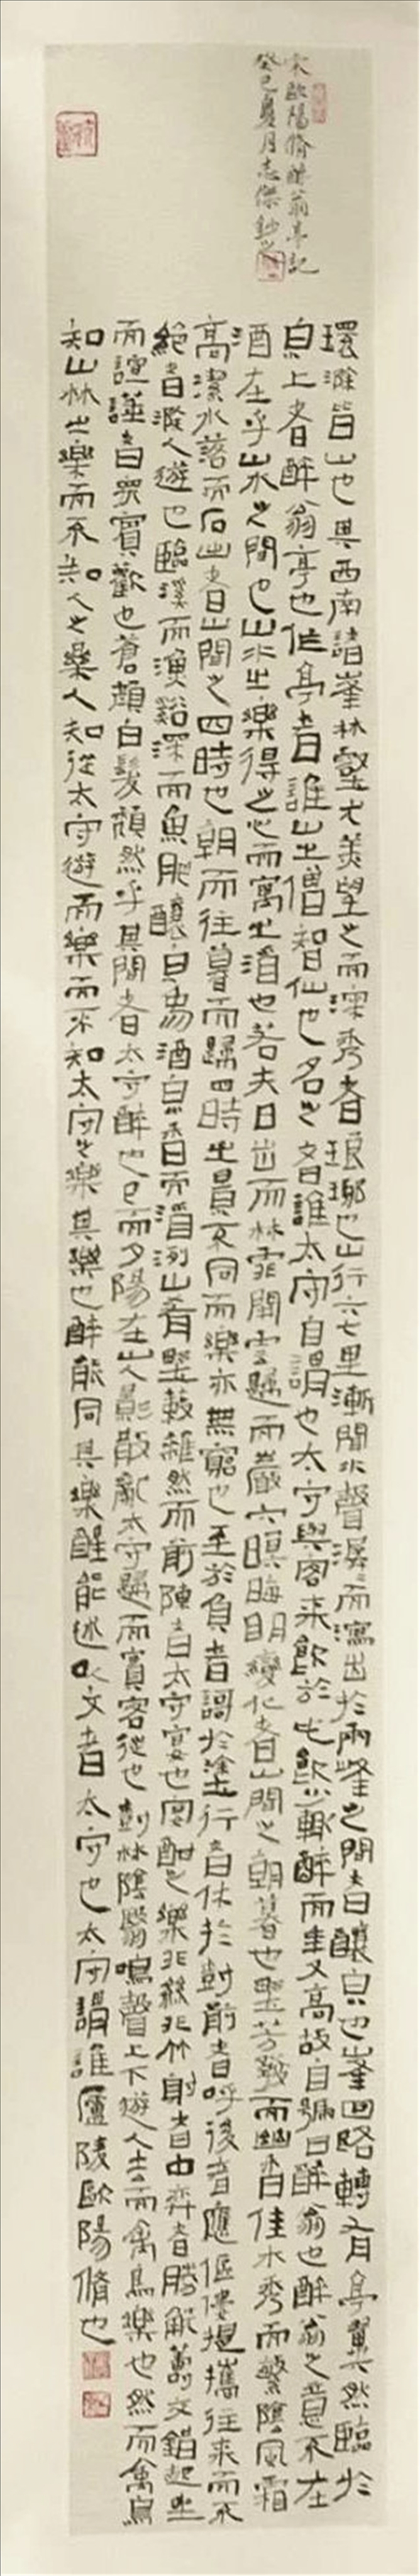 宋歐陽脩醉翁亭記
癸巳夏月志傑鈔之
環滁皆山也其西南諸峯林壑尤美望之而深秀者琅琊也山行六七里漸聞水聲潺潺而瀉出於兩峰之間者釀泉也峯回路轉有亭翼然臨於
泉上者醉翁亭也作亭者誰山之僧智仙也名之者誰太守自謂也太守與客來飲於此飲少輒醉而年又高故自號曰醉翁也醉翁之意不在
酒在乎山水之間也山水之樂得之心而寓之酒也若夫日出而林霏開雲歸而巖穴暝晦明變化者山間之朝暮也野芳發而幽香佳木秀而繁陰風霜
高潔水落而石出者山間之四時也朝而往暮而歸四時之景不同而樂亦無窮也至於負者謌於塗行者休於樹前者呼後者應傴僂提攜往來而不
絕者滁人遊也臨溪而漁谿深而魚肥釀泉為酒泉香而酒洌山肴野蔌雜然而前陳者太守宴也宴酣之樂非絲非竹射者中弈者勝觥籌交錯起坐
而諠譁者眾賓歡也蒼顏白髮頹然乎其間者太守醉也已而夕陽在山人影散亂太守歸而賓客從也樹林陰翳鳴聲上下遊人去而禽鳥樂也然而禽鳥
知山林之樂而不知人之樂人知從太守遊而樂而不知太守之樂其樂也醉能同其樂醒能述以文者太守也太守謂誰廬陵歐陽脩也